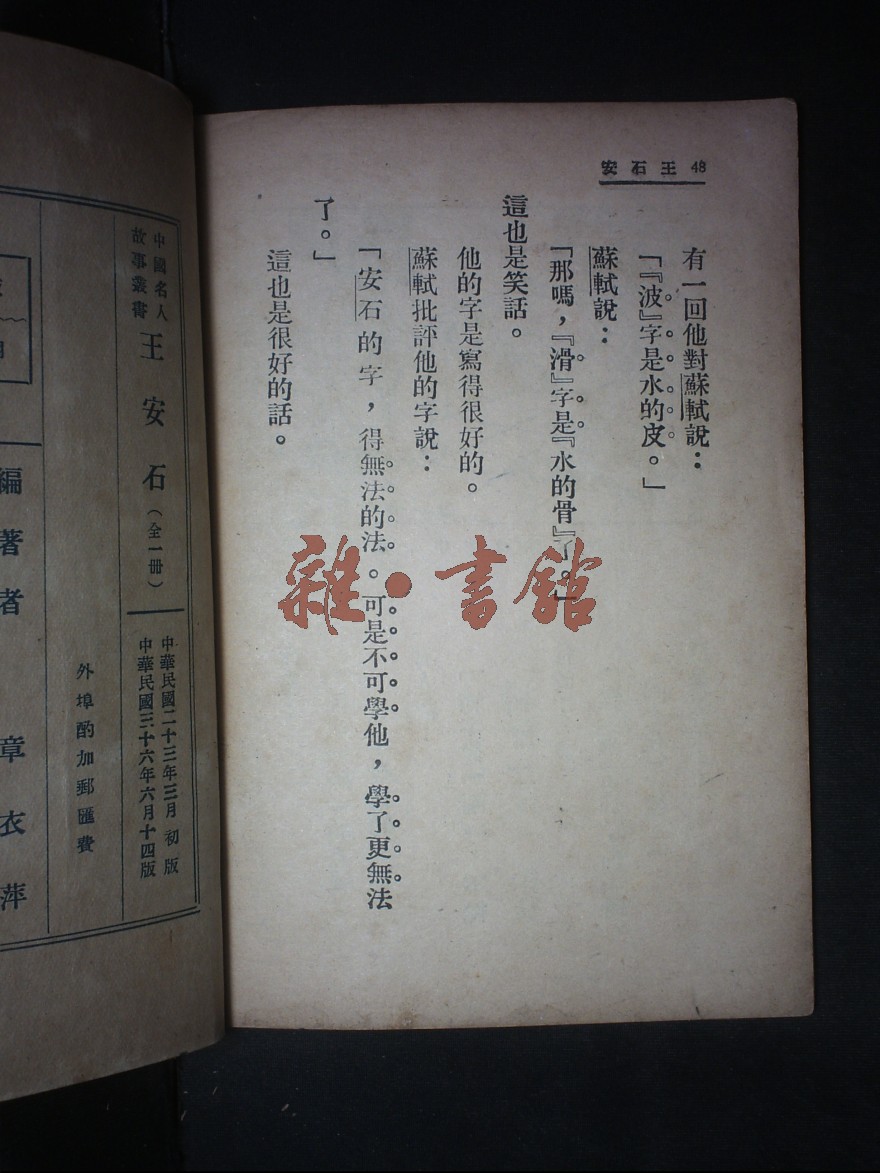 王安石 48
有一回他對蘇軾說：
「『波』字是水的皮。」
蘇軾說：
「那嗎，『滑』字是『水的骨』了。」
這也是笑話。
他的字是寫得很好的。
蘇軾批評他的字說：
「安石的字，得無法的法。可是不可學他，學了更無法
了。」
這也是很好的話。
雜·書館
中國名人
故事叢書
王安石（全一冊）
中華民國二十三年三月初版
中華民國三十六年六月十四版
外埠酌加郵匯費
編著者 章衣萍